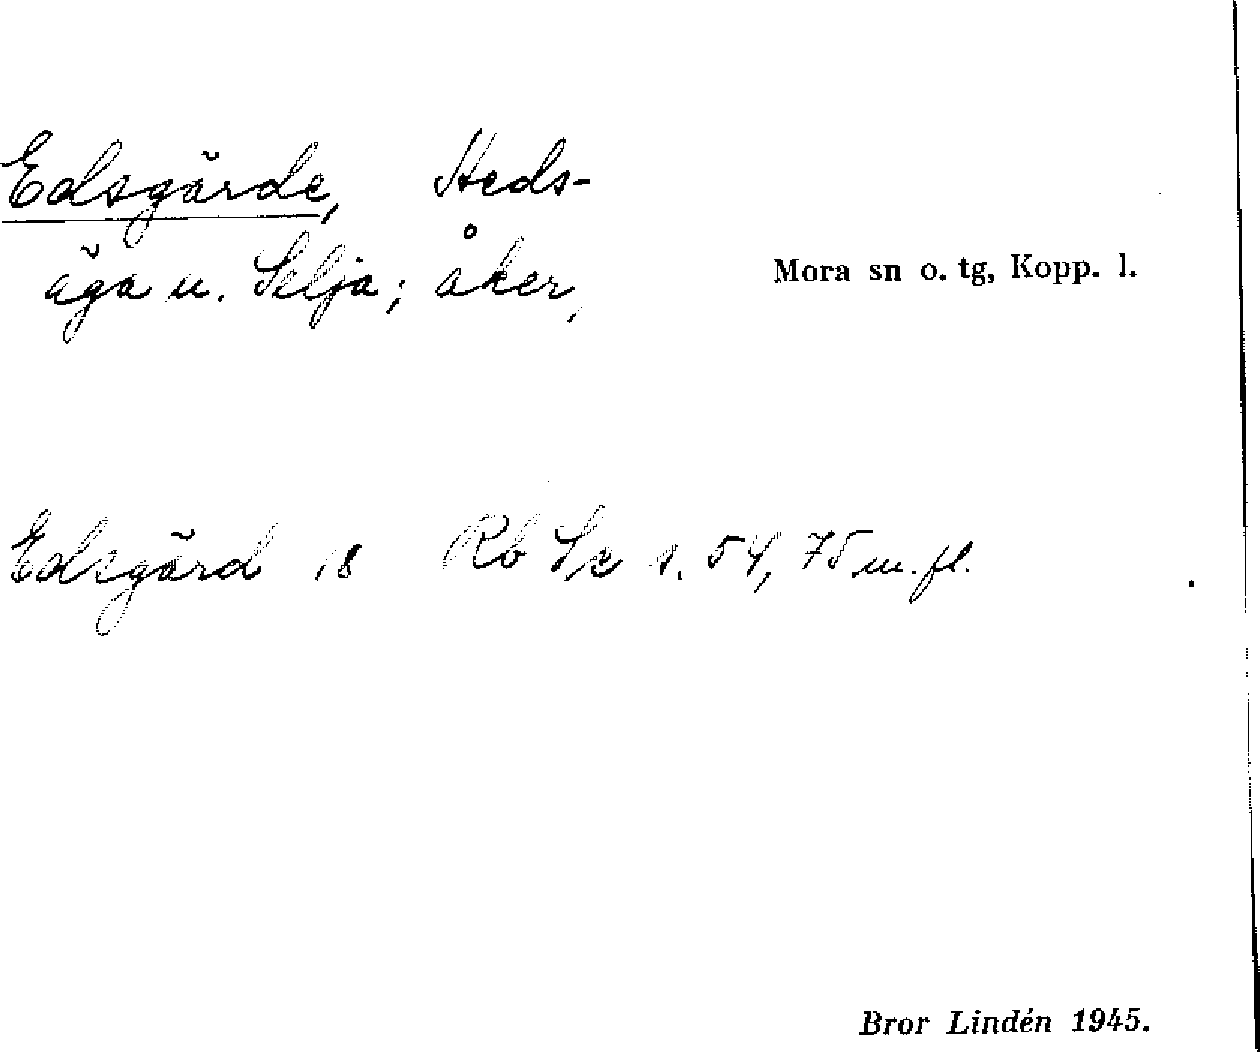 Edsgärde, Heds-
äga u. Selja; åker,
Mora sn o. tg, Kopp. l.
Edsgärd 18 Rb Sz s. 54, 75 m. fl.
Bror Lindén 1945.